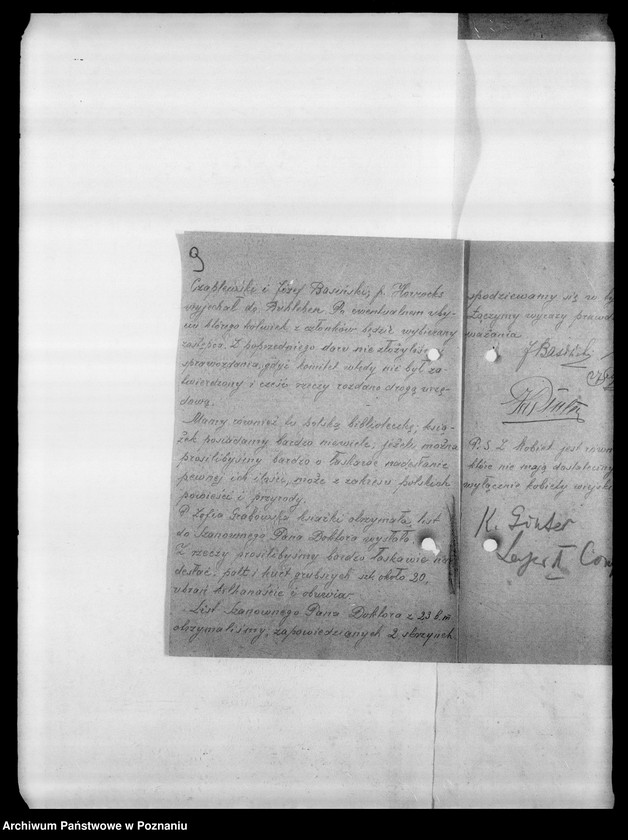 9
Czapliński i Józef Basiński, p. Horrocks
wyjechał do Bühleben. Po ewentualnym uby-
ciu którego kolwiek z członków będzie wybierany
zastępca. Z poprzedniego daru nie złożyliśmy
sprawozdania, gdyż komitet wtedy nie był za-
twierdzony i część rzeczy rozdano drogą urzę-
dową.
Mamy również tu polską biblioteczkę; ksią-
żek posiadamy bardzo niewiele; jeżeli można
prosilibyśmy bardzo o łaskawe nadesłanie
pewnej ich ilości, może z zakresu polskich
powieści i przyrody.
P. Zofia Grabowska książki otrzymała, list
do Szanownego Pana Doktora wysłała.
Z rzeczy prosilibyśmy bardzo łaskawie na-
desłać: palt i kurt grubszych szt. około 20,
ubrań kilkanaście i obuwia.
List Szanownego Pana Doktora z 23 b.m
otrzymaliśmy; zapowiedzianych 2 skrzynek
spodziewamy się
Łączymy wyrazy prawdz
ważania
J Basiński
P. S. Z kobiet jest
które nie mają dostatecznej
wyłącznie kobiety wiejskie
K. Günter
Lager II Com
Archiwum Państwowe w Poznaniu